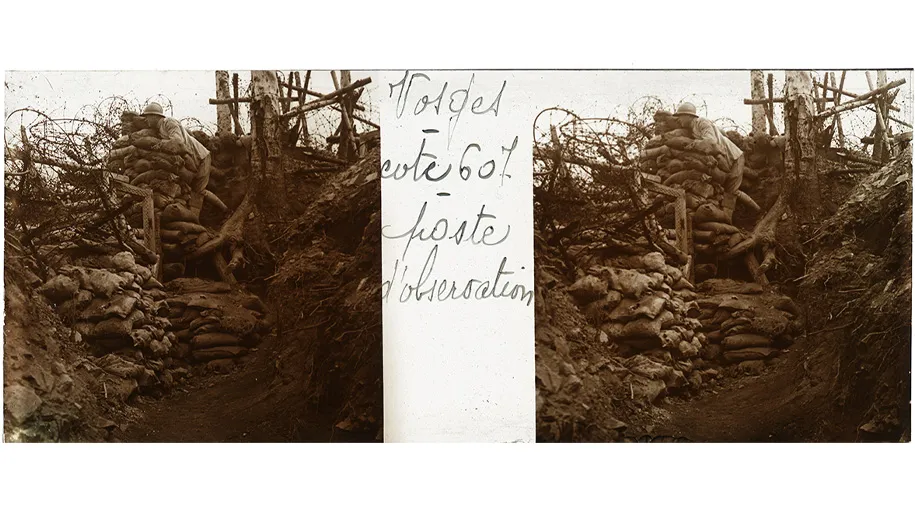 Vosges
cote 607
poste
d'observation